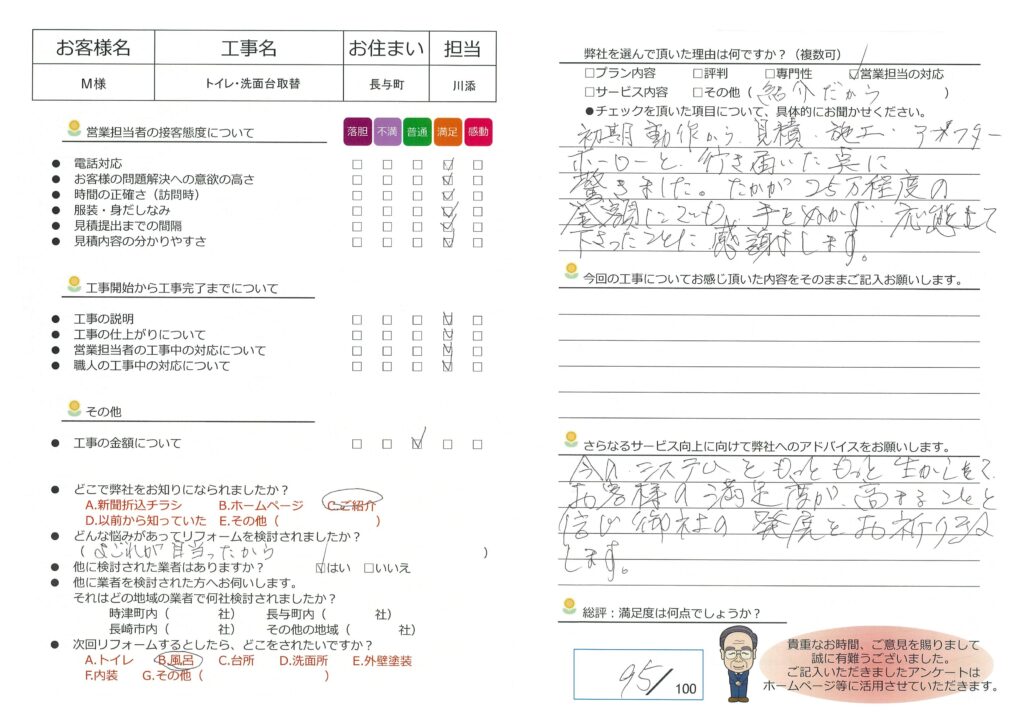 お客様名 工事名 お住まい 担当
M様 トイレ・洗面台取替 長与町 川添
営業担当者の接客態度について 落胆 不満 普通 満足 感動
● 電話対応 □ □ □ ☑ □
● お客様の問題解決への意欲の高さ □ □ □ ☑ □
● 時間の正確さ（訪問時） □ □ □ ☑ □
● 服装・身だしなみ □ □ □ ☑ □
● 見積提出までの間隔 □ □ □ ☑ □
● 見積内容の分かりやすさ □ □ □ ☑ □
工事開始から工事完了までについて
● 工事の説明 □ □ □ ☑ □
● 工事の仕上がりについて □ □ □ ☑ □
● 営業担当者の工事中の対応について □ □ □ ☑ □
● 職人の工事中の対応について □ □ □ ☑ □
その他
● 工事の金額について □ □ ☑ □ □
● どこで弊社をお知りになられましたか？
A.新聞折込チラシ B.ホームページ C.ご紹介
D.以前から知っていた E.その他（ ）
● どんな悩みがあってリフォームを検討されましたか？
（ よごれが目当ったから ）
● 他に検討された業者はありますか？ ☑はい □いいえ
● 他に業者を検討された方へお伺いします。
それはどの地域の業者で何社検討されましたか？
時津町内（ 社） 長与町内（ 社）
長崎市内（ 社） その他の地域（ 社）
● 次回リフォームするとしたら、どこをされたいですか？
A.トイレ B.風呂 C.台所 D.洗面所 E.外壁塗装
F.内装 G.その他（ ）
弊社を選んで頂いた理由は何ですか？（複数可）
□プラン内容 □評判 □専門性 ☑営業担当の対応
□サービス内容 □その他（ 紹介だから ）
●チェックを頂いた項目について、具体的にお聞かせください。
初期動作から、見積、施工、アフター
ホーローと、行き届いた実に
驚きました。たかが25万程度の
金額にでも、手をぬかず、
下さったことに感謝します。
今回の工事についてお感じ頂いた内容をそのままご記入お願いします。
さらなるサービス向上に向けて弊社へのアドバイスをお願いします。
今の、システムをもっともっと生かし
お客様の満足度が、高まることと
信じ御社の発展をお祈り
します。
総評：満足度は何点でしょうか？
95/100
貴重なお時間、ご意見を賜りまして
誠に有難うございました。
ご記入いただきましたアンケートは
ホームページ等に活用させていただきます。